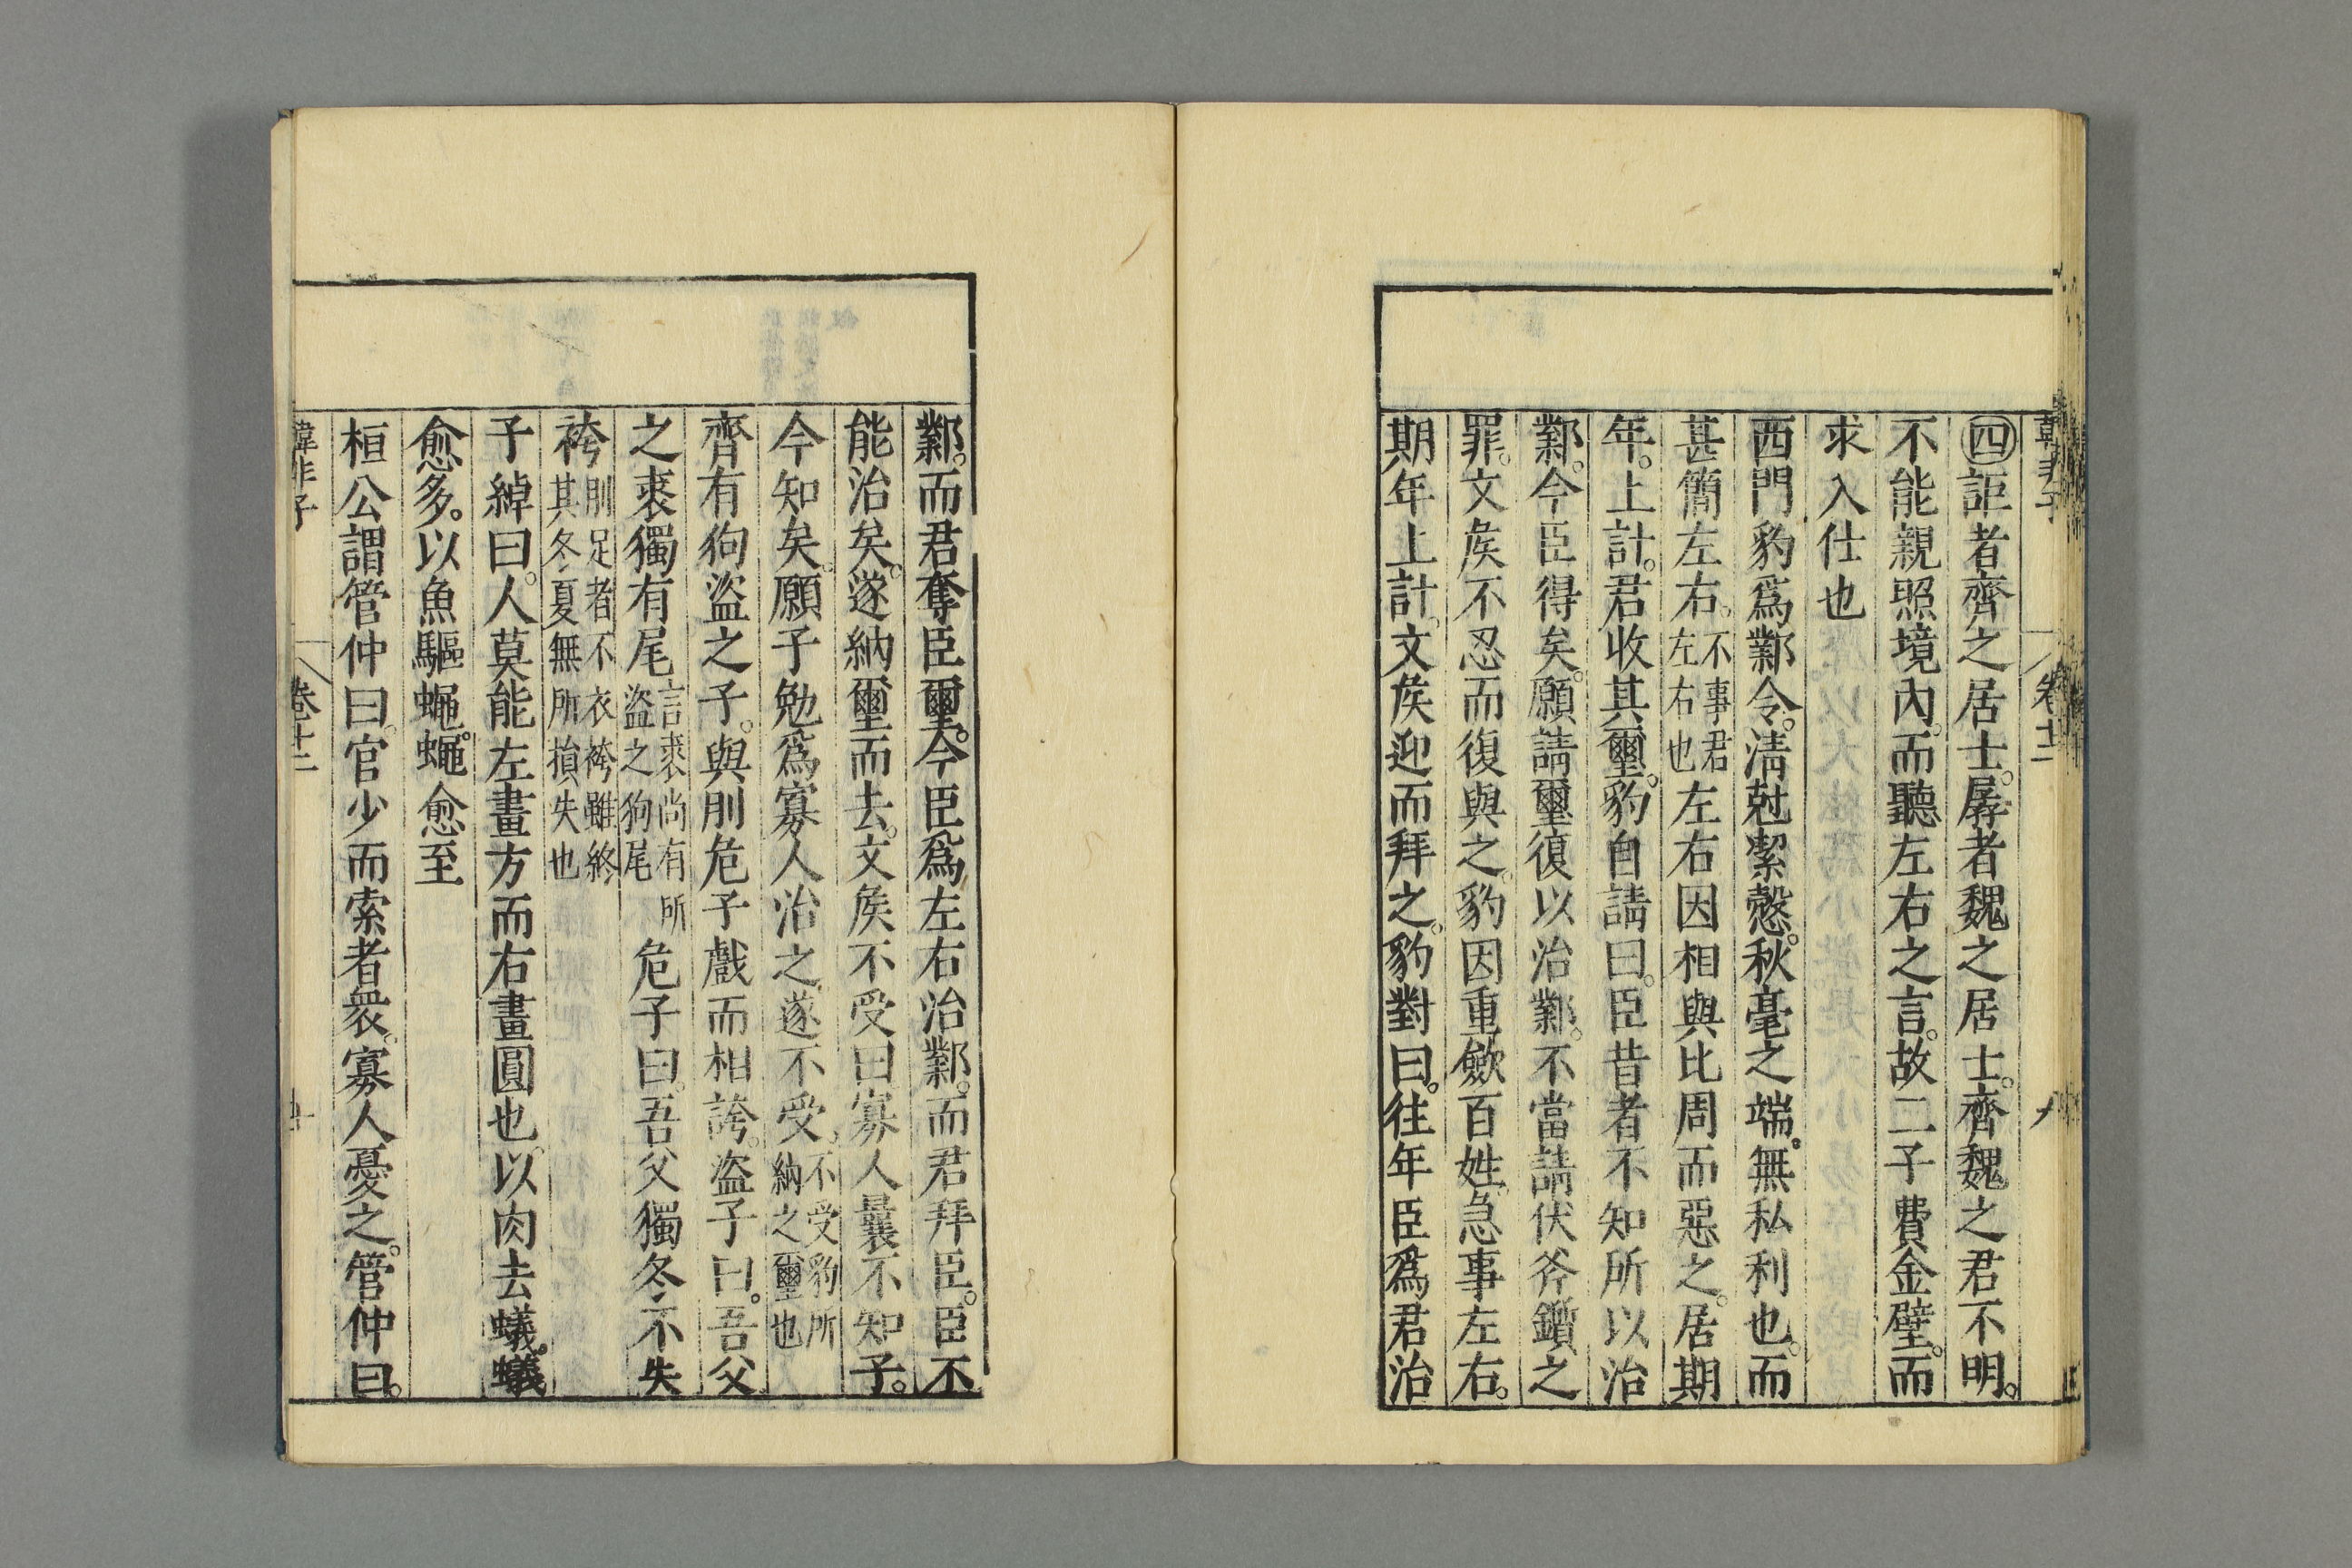 韓非子 卷十二
四詎者齊之居士。孱者魏之居士。齊魏之君不明。
不能親照境內。而聽左右之言。故二子費金璧。而
求入仕也
西門豹爲鄴令。淸尅潔慤。秋毫之端。無私利也。而
甚簡左右。不事君左右也左右因相與比周而惡之。居期
年。上計。君收其璽。豹自請曰。臣昔者不知所以治
鄴。今臣得矣。願請璽復以治鄴。不當請伏斧鑕之
罪。文矦不忍而復與之。豹因重歛百姓。急事左右。
期年上計。文矦迎而拜之。豹對曰。往年臣爲君治
鄴。而君奪臣璽。今臣爲左右治鄴。而君拜臣。臣不
能治矣。遂納璽而去。文矦不受曰寡人曩不知子。
今知矣。願子勉爲寡人治之。遂不受。不受豹所納之璽也
齊有狗盜之子。與刖危子戲而相誇。盜子曰。吾父
之裘獨有尾言裘尚有所盜之狗尾危子曰。吾父獨冬不失
袴刖足者不衣袴雖終其冬夏無所損失也
子綽曰。人莫能左畫方而右畫圓也。以肉去蟻。蟻
愈多。以魚驅蠅。蠅愈至
桓公謂管仲曰。官少而索者衆。寡人憂之。管仲曰。
韓非子 卷十二